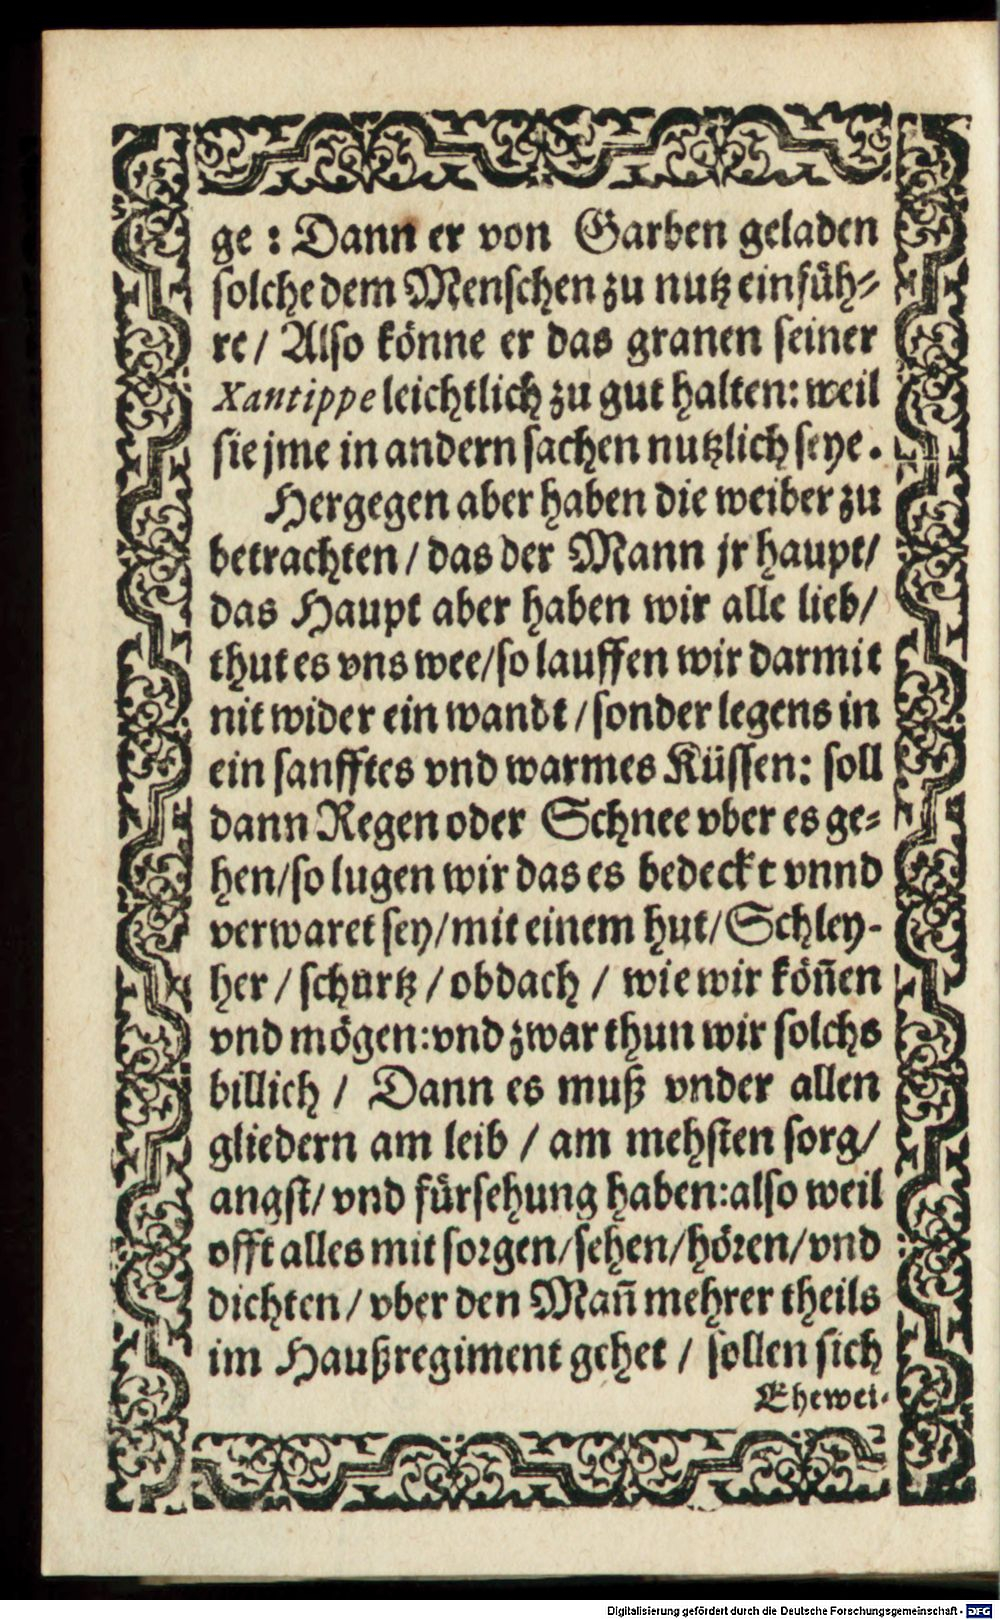 ge : Dann er von Garben geladen
solche dem Menschen zu nutz einfüh-
re / Also könne er das granen seiner
Xantippe leichtlich zu gut halten: weil
sie jme in andern sachen nutzlich seye.
Hergegen aber haben die weiber zu
betrachten / das der Mann jr haupt/
das Haupt aber haben wir alle lieb/
thut es vns wee/so lauffen wir darmit
nit wider ein wandt / sonder legens in
ein sanfftes vnd warmes Küssen: soll
dann Regen oder Schnee vber es ge-
hen/so lugen wir das es bedeckt vnnd
verwaret sey/mit einem hut/Schley-
her / schurtz / obdach / wie wir kön̄en
vnd mögen:vnd zwar thun wir solchs
billich / Dann es muß vnder allen
gliedern am leib / am mehsten sorg/
angst/ vnd fürsehung haben:also weil
offt alles mit sorgen/sehen/hören/vnd
dichten / vber den Man̄ mehrer theils
im Haußregiment gehet / sollen sich
Ehewei-
Digitalisierung gefördert durch die Deutsche Forschungsgemeinschaft - DFG